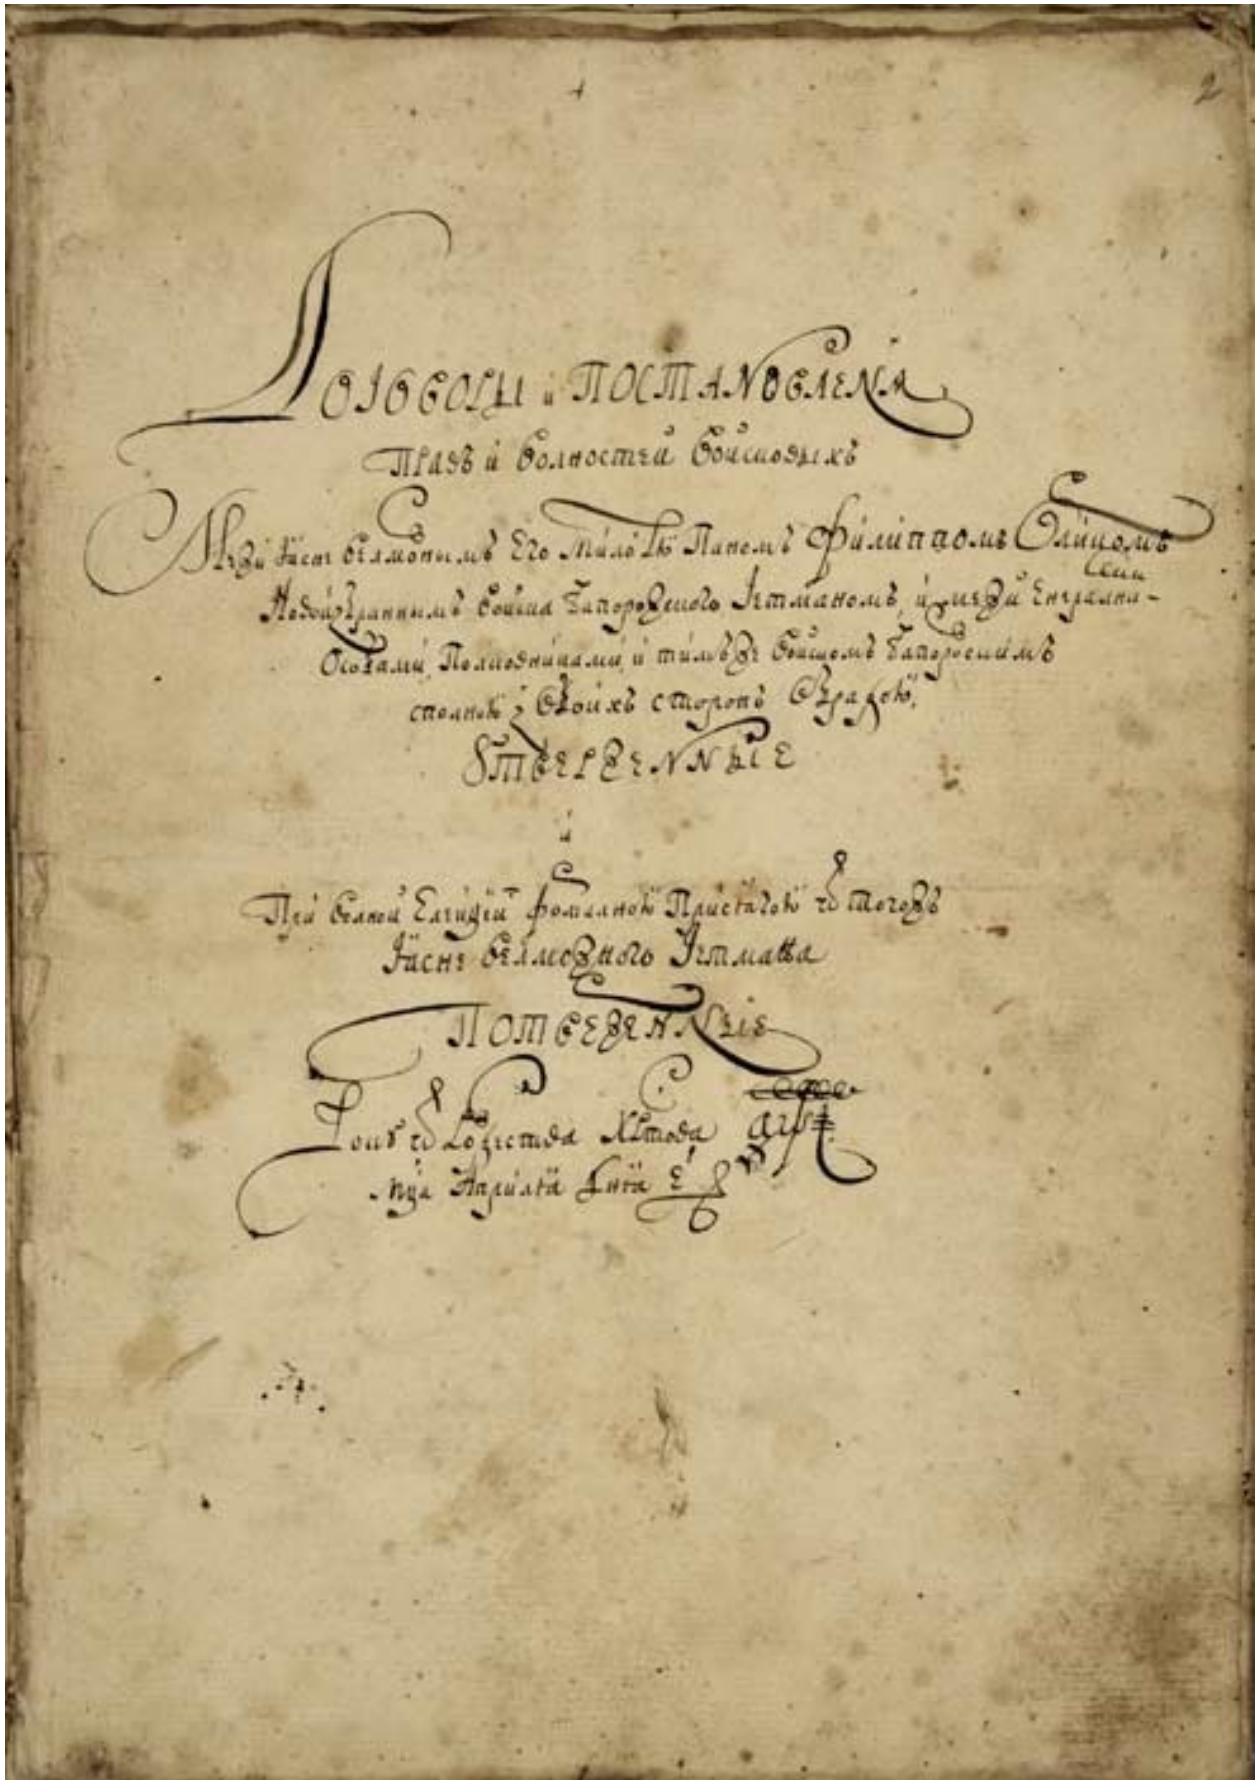 2
Договоры и Постановленя
Правъ и волностей войсковыхъ
Межи Ясне велможнымъ Его Милостю Паномъ Филиппомъ Орликомъ
Новоизбраннымъ войска Запорожского Гетманомъ, и межи Енералными
Особами, Полковниками, и тимъже войскомъ Запорожскимъ
сполною з обоихъ сторонъ обрадою,
Утверженные
и
При волной Елекцiи формалною Присягою ѿ тогожъ
Ясне велможного Гетмана
Потверженные
Року ѿ Рожества Христова
Мця Априля Дня е҃